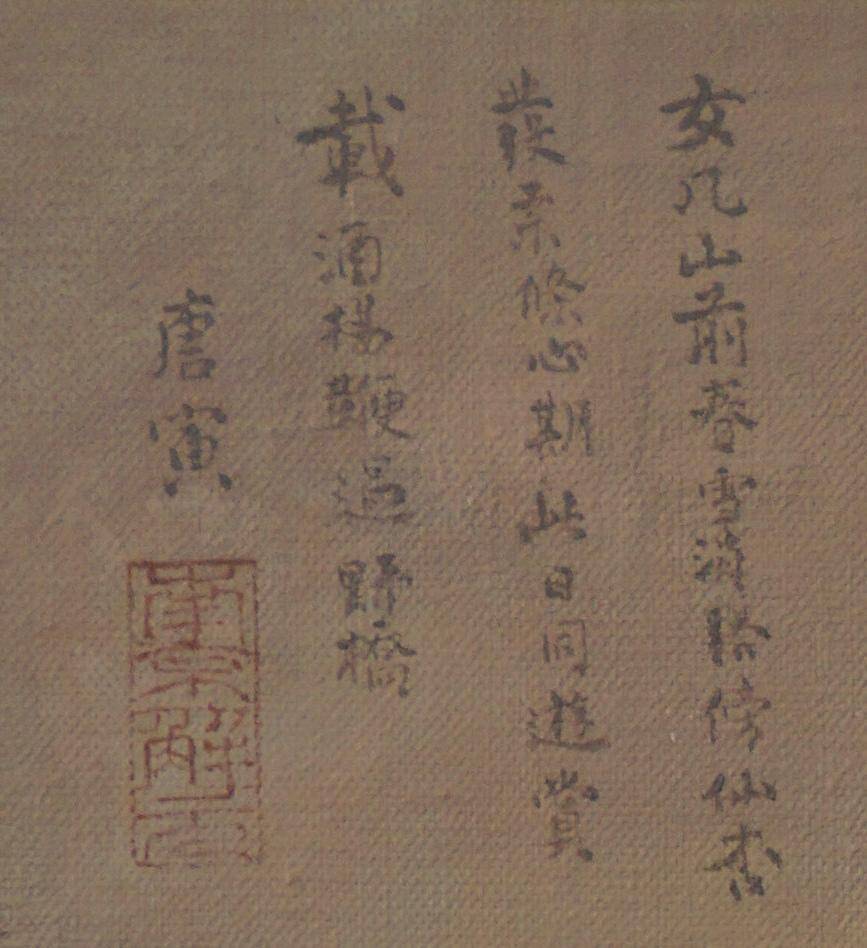 女几山前春雪消路傍仙杏
發柔條心期此日同遊賞
載酒揚鞭過野橋
唐寅
南京解元